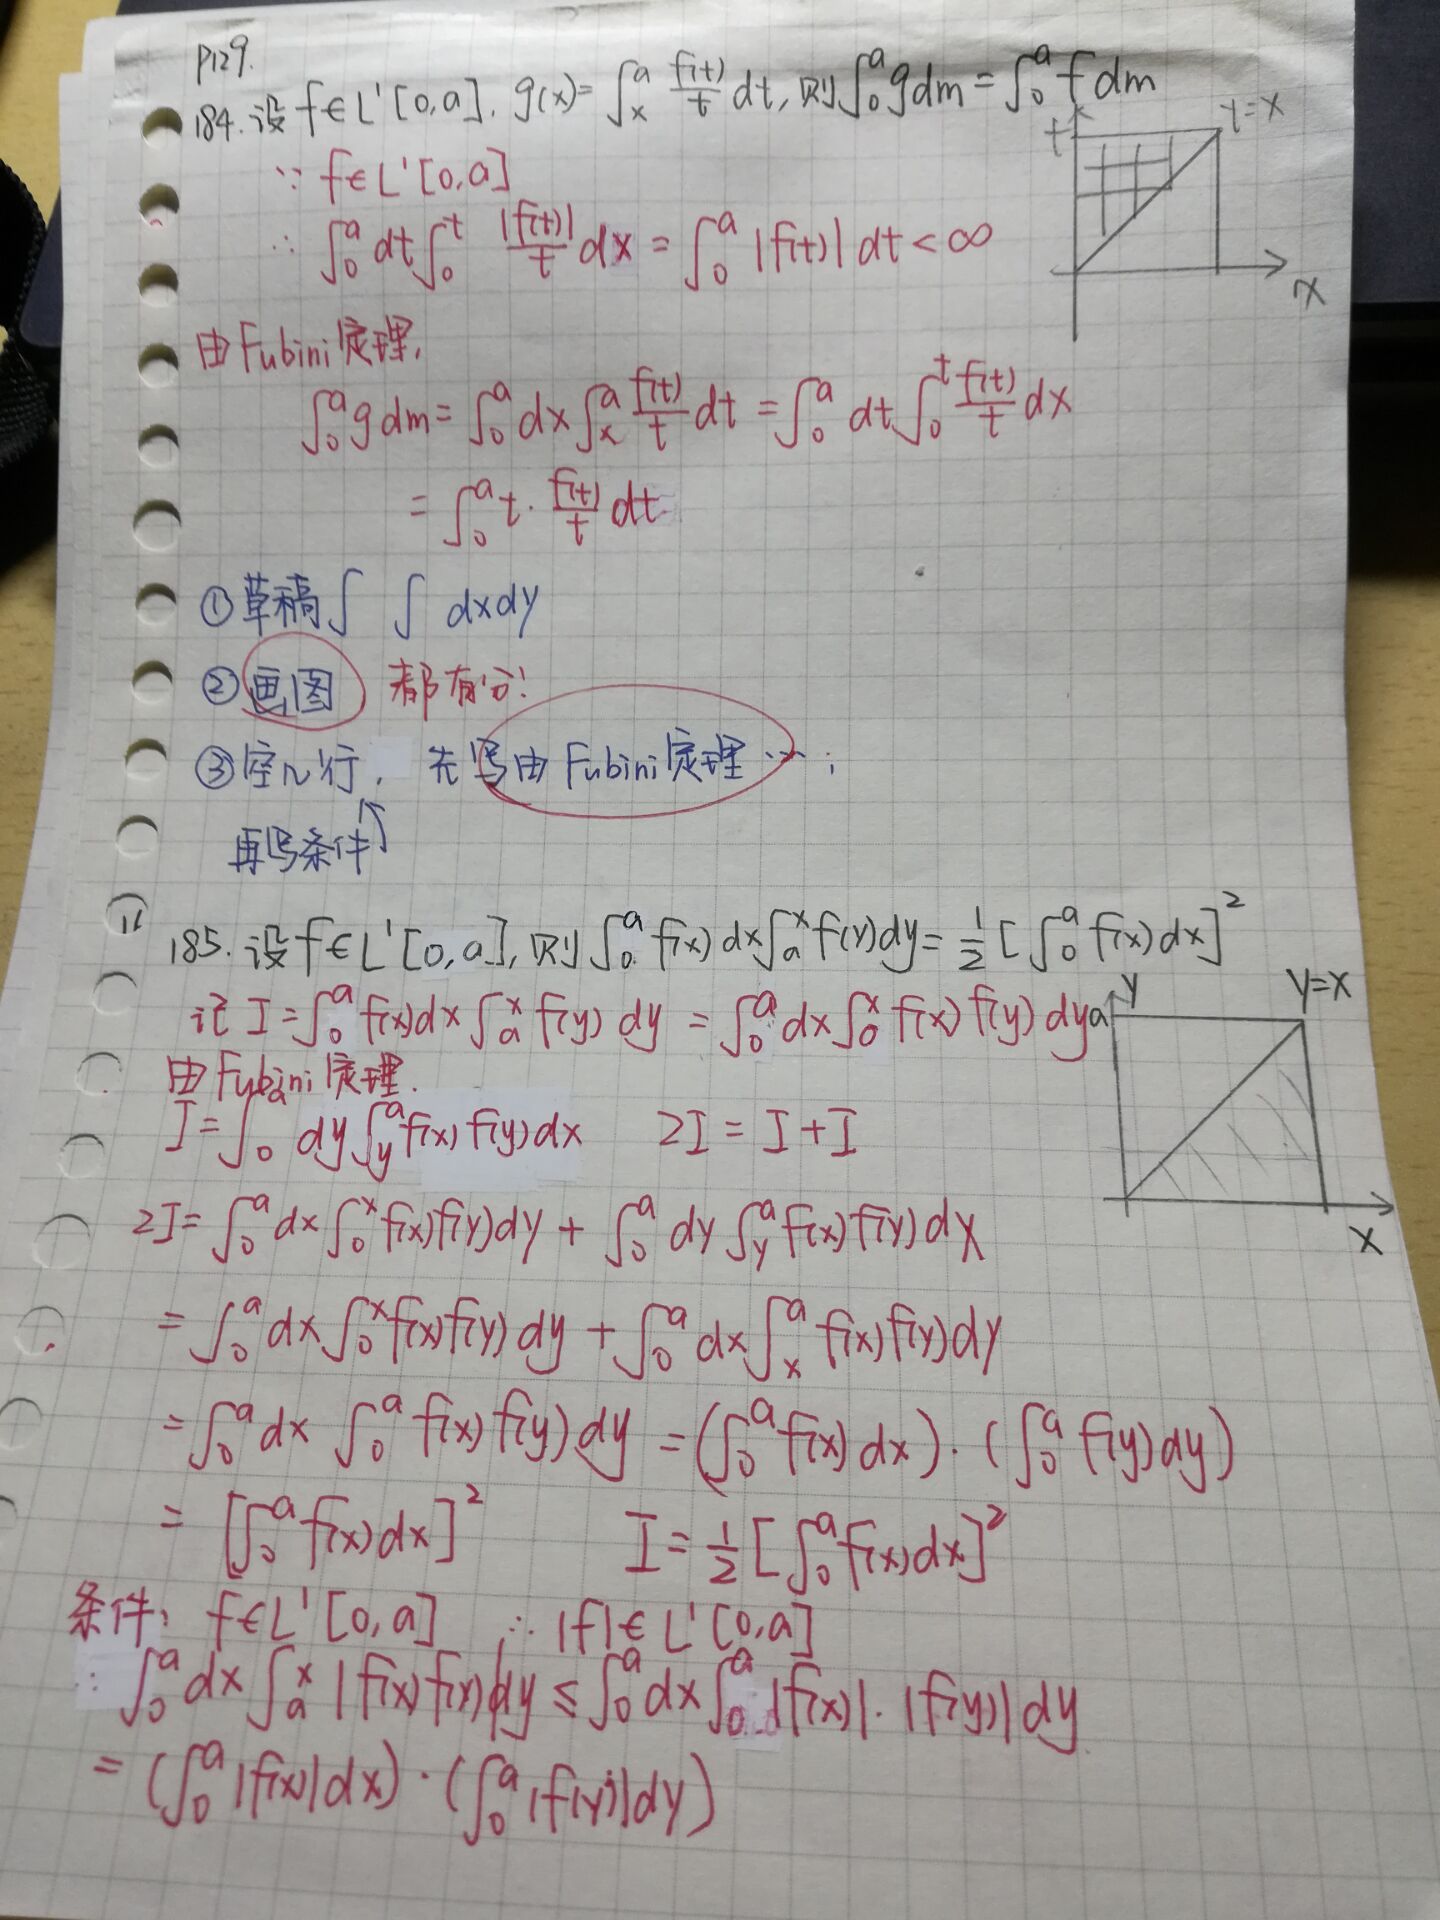 P129.
184. 设 f∈L'[0,a], g(x)=∫_x^a f(t)/t dt, 则∫_0^a g dm=∫_0^a f dm
t t=x
x
∵ f∈L'[0,a]
∴ ∫_0^a dt∫_0^t |f(t)|/t dx=∫_0^a |f(t)| dt<∞
由Fubini定理,
∫_0^a g dm=∫_0^a dx∫_x^a f(t)/t dt=∫_0^a dt∫_0^t f(t)/t dx
=∫_0^a t·f(t)/t dt
①草稿∫ ∫ dxdy
②画图 都有分!
③空几行, 先写由Fubini定理…;
再写条件
185. 设f∈L'[0,a], 则∫_0^a f(x)dx∫_a^x f(y)dy=1/2[∫_0^a f(x)dx]^2
y y=x
a
x
记I=∫_0^a f(x)dx∫_a^x f(y)dy=∫_0^a dx∫_0^x f(x)f(y)dy
由Fubini定理.
I=∫_0^a dy∫_y^a f(x)f(y)dx 2I=I+I
2I=∫_0^a dx∫_0^x f(x)f(y)dy+∫_0^a dy∫_y^a f(x)f(y)dx
=∫_0^a dx∫_0^x f(x)f(y)dy+∫_0^a dx∫_x^a f(x)f(y)dy
=∫_0^a dx∫_0^a f(x)f(y)dy=(∫_0^a f(x)dx)·(∫_0^a f(y)dy)
=[∫_0^a f(x)dx]^2 I=1/2[∫_0^a f(x)dx]^2
条件: f∈L'[0,a] ∴|f|∈L'[0,a]
∵∫_0^a dx∫_a^x |f(x)f(x)|dy≤∫_0^a dx∫_0^a |f(x)|·|f(y)|dy
=(∫_0^a |f(x)|dx)·(∫_0^a |f(y)|dy)